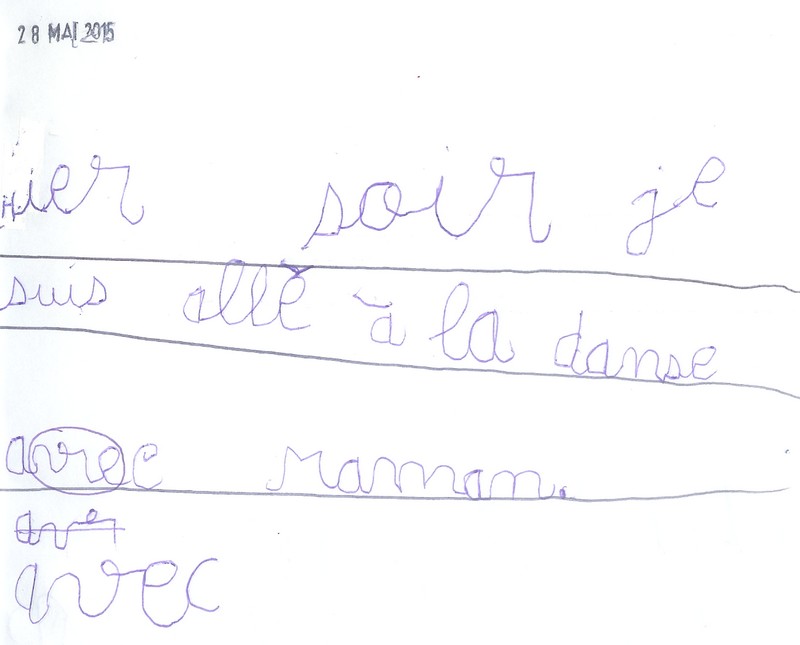 28 MAI 2015
Hier soir je
suis allé à la danse
avec maman.
ave
avec